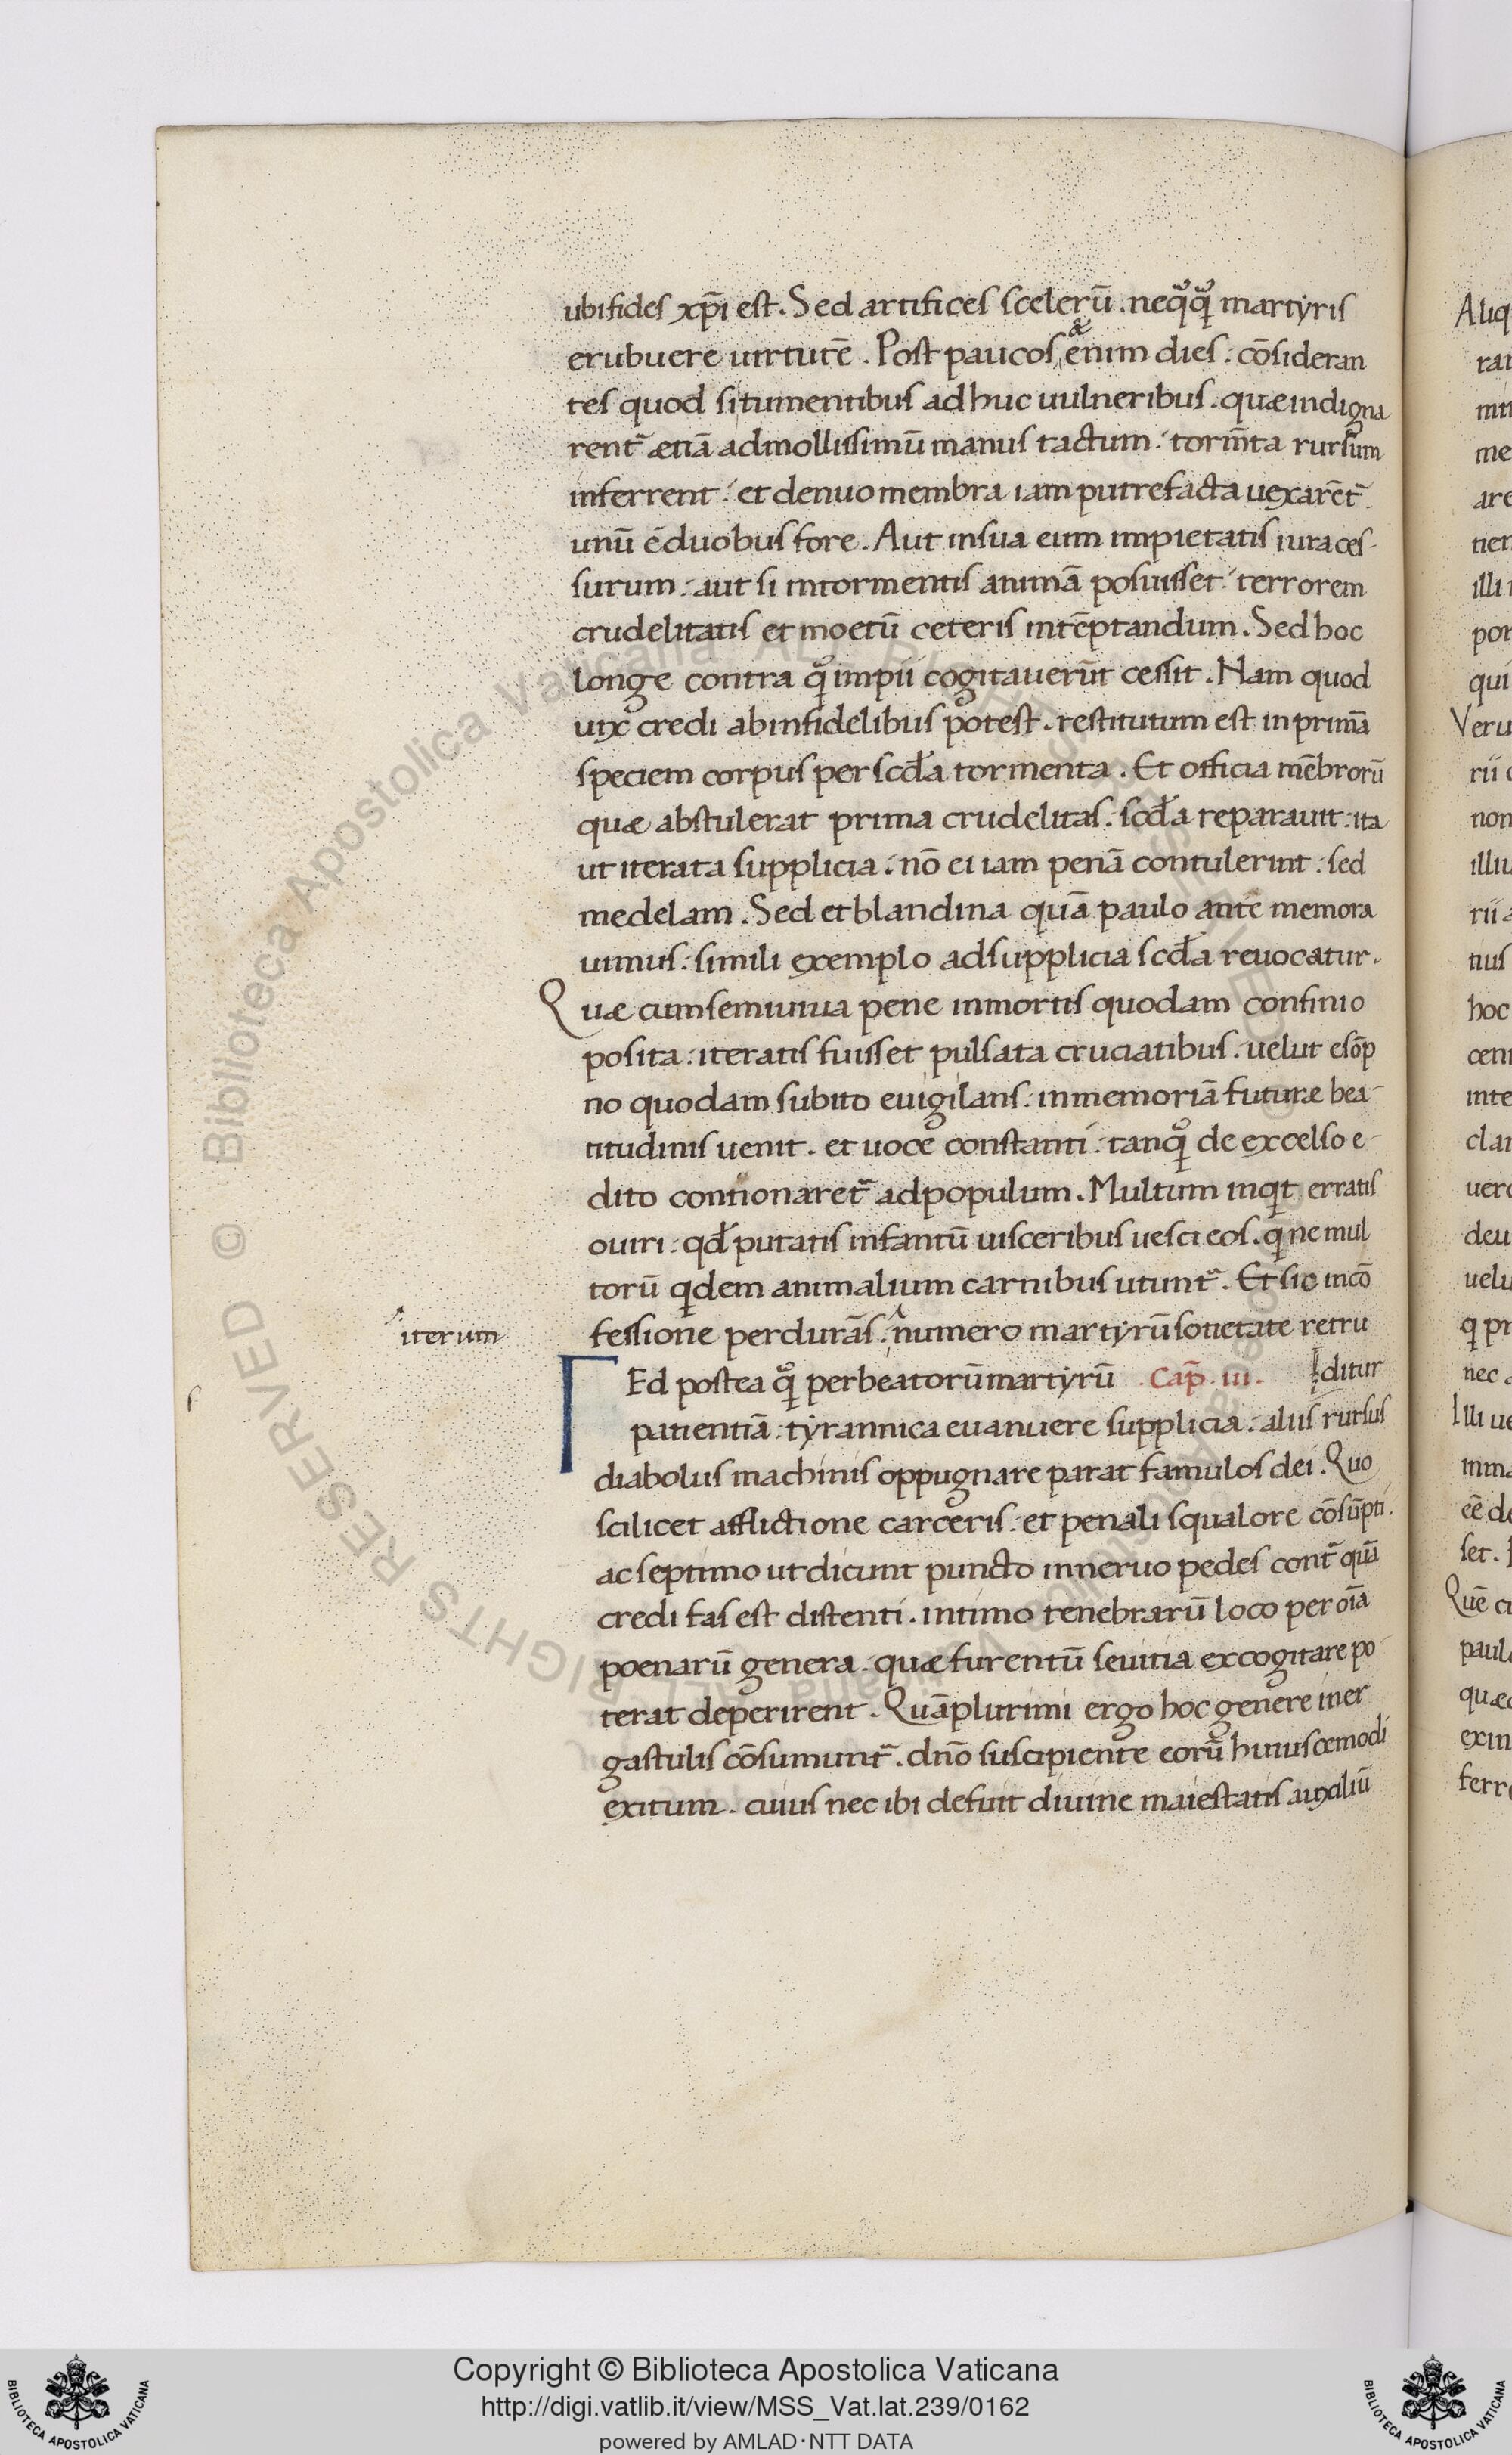 ubi fides xp̄i est. Sed artifices scelerū. neqͦqͦ martyris
&
erubuere uirtutē. Post paucos enim dies. cōsideran
tes quod si tumentibus adhuc uulneribus. quæ indigna
rent᷑ ætiā ad mollissimū manus tactum. torm̄ta rursum
inferrent. et denuo membra iam putrefacta uexarēt᷑.
unū e duobus fore. Aut in sua eum impietatis iura ces-
surum. aut si in tormentis animā posuisset. terrorem
crudelitatis et moetū ceteris intēptandum. Sed hoc
longe contra qͦ impii cogitauerūt cessit. Nam quod
uix credi ab infidelibus potest. restitutum est in primā
speciem corpus per scd̄a tormenta. Et officia mēbrorū
quæ abstulerat prima crudelitas. scd̄a reparauit. ita
ut iterata supplicia. nō ei iam penā contulerint. sed
medelam. Sed et blandina quā paulo ante memora
uimus. simili exemplo ad supplicia scd̄a reuocatur.
Quæ cum semiuiua pene in mortis quodam confinio
posita. iteratis fuisset pulsata cruciatibus. uelut e sōp
no quodam subito euigilans. in memoriā futuræ bea-
titudinis uenit. et uoce constanti. tanqͦ de excelso e-
dito contionaret᷑ ad populum. Multum inqͥt erratis
o uiri. qd̄ putatis infantū uisceribus uesci eos. qͥ ne mul
torū qͥdem animalium carnibus utunt᷑. Et sic in cō
fessione perdurās. numero martyrū sotietate retru
iterum
ditur
Ed postea qͦ per beatorū martyrū Cap̄. iii.
s
patientiā. tyrannica euanuere supplicia. aliis rursus
diabolus machinis oppugnare parat famulos dei. Quo
scilicet afflictione carceris. et penali squalore cōsūpti.
ac septimo ut dicunt puncto in neruo pedes cont᷑ quā
credi fas est distenti. intimo tenebrarū loco per oīa
poenarū genera. quæ furentū seuitia excogitare po
terat deperirent. Quāplurimi ergo hoc genere in er
gastulis cōsumunt᷑. dn̄o suscipiente eorū huiuscemodi
exitum. cuius nec ibi defuit diuine maiestatis auxiliū
Copyright © Biblioteca Apostolica Vaticana
http://digi.vatlib.it/view/MSS_Vat.lat.239/0162
powered by AMLAD·NTT DATA